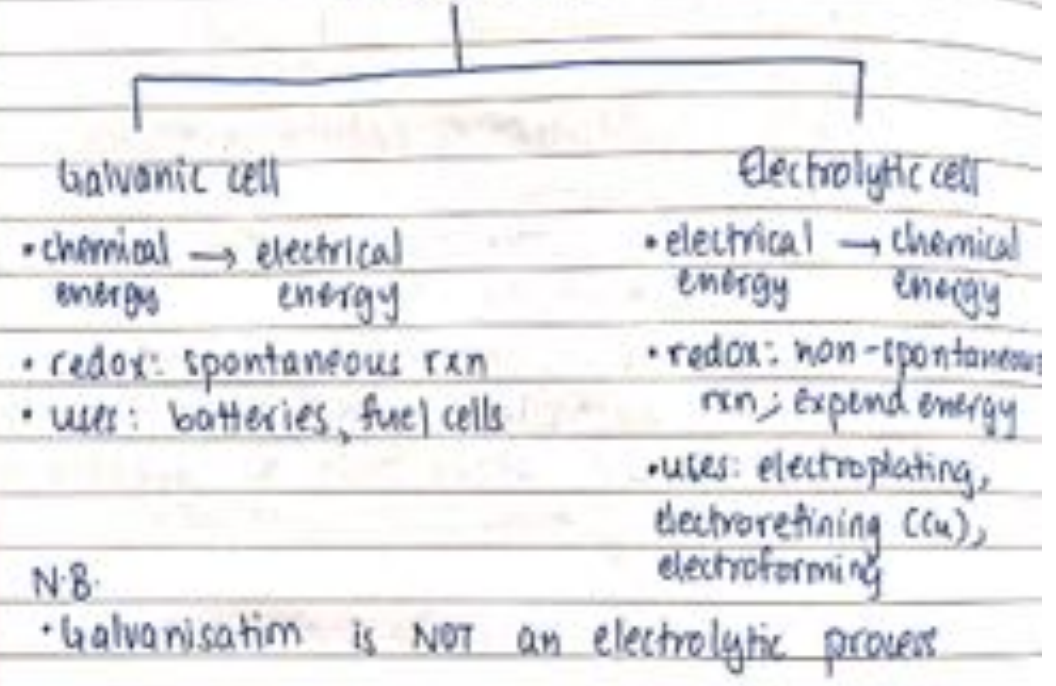 Galvanic cell
• chemical → electrical
energy energy
• redox: spontaneous rxn
• uses: batteries, fuel cells
Electrolytic cell
• electrical → chemical
energy energy
• redox: non-spontaneous
rxn; expend energy
• uses: electroplating,
electrorefining (Cu),
electroforming
N.B.
• Galvanisation is NOT an electrolytic process